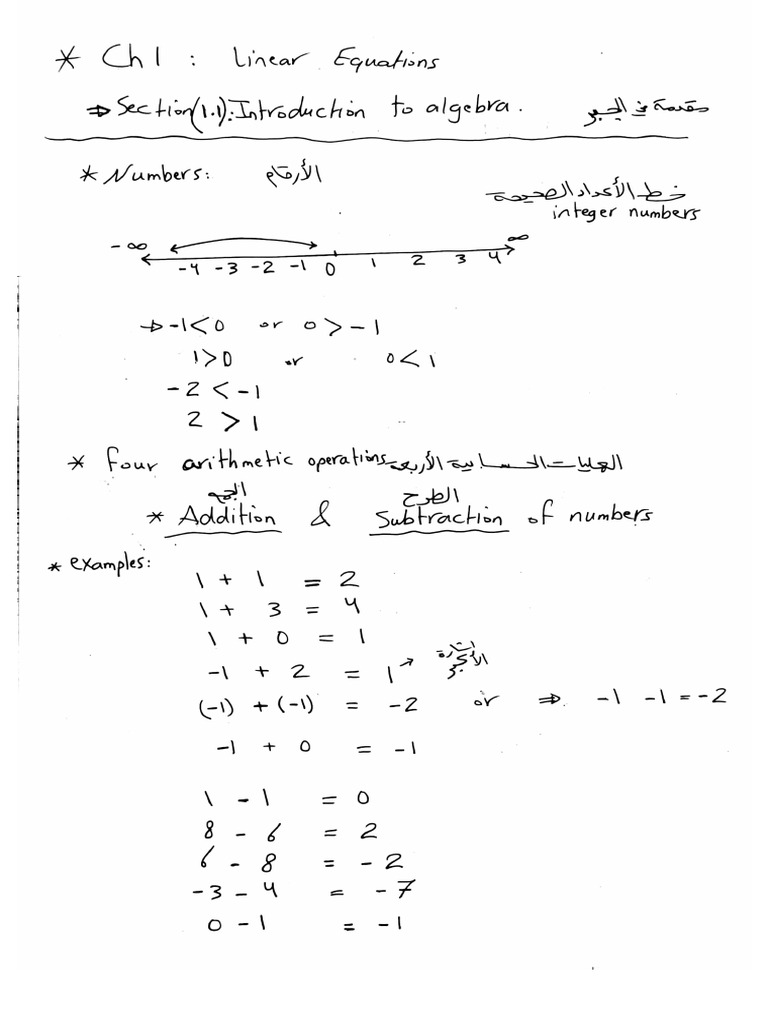 * Ch 1 : Linear Equations
⇒ Section(1.1): Introduction to algebra. مقدمة في الجبر
* Numbers: الأرقام
خط الأعداد الصحيحة
integer numbers
-∞ ∞
-4 -3 -2 -1 0 1 2 3 4
⇒ -1 < 0 or 0 > -1
1 > 0 or 0 < 1
-2 < -1
2 > 1
* four arithmetic operations العمليات الحسابية الأربعة
الجمع الطرح
* Addition & Subtraction of numbers
* examples:
1 + 1 = 2
1 + 3 = 4
1 + 0 = 1
-1 + 2 = 1 → إشارة الأكبر
(-1) + (-1) = -2 or ⇒ -1 -1 = -2
-1 + 0 = -1
1 - 1 = 0
8 - 6 = 2
6 - 8 = -2
-3 - 4 = -7
0 - 1 = -1